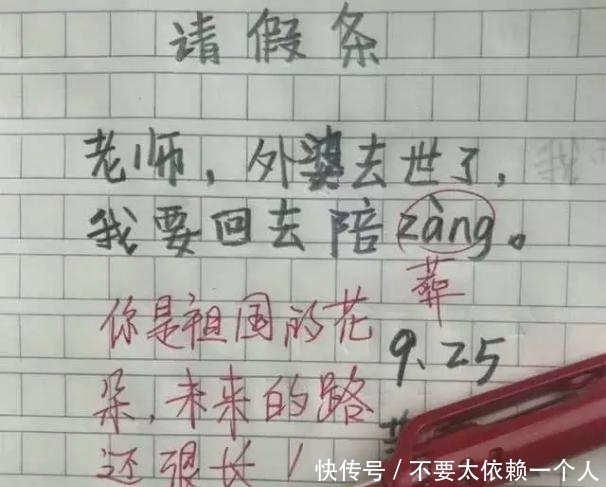 请假条
老师，外婆去世了，
我要回去陪zàng。
葬
你是祖国的花
朵，未来的路
还很长！
9.25
快传号/不要太依赖一个人